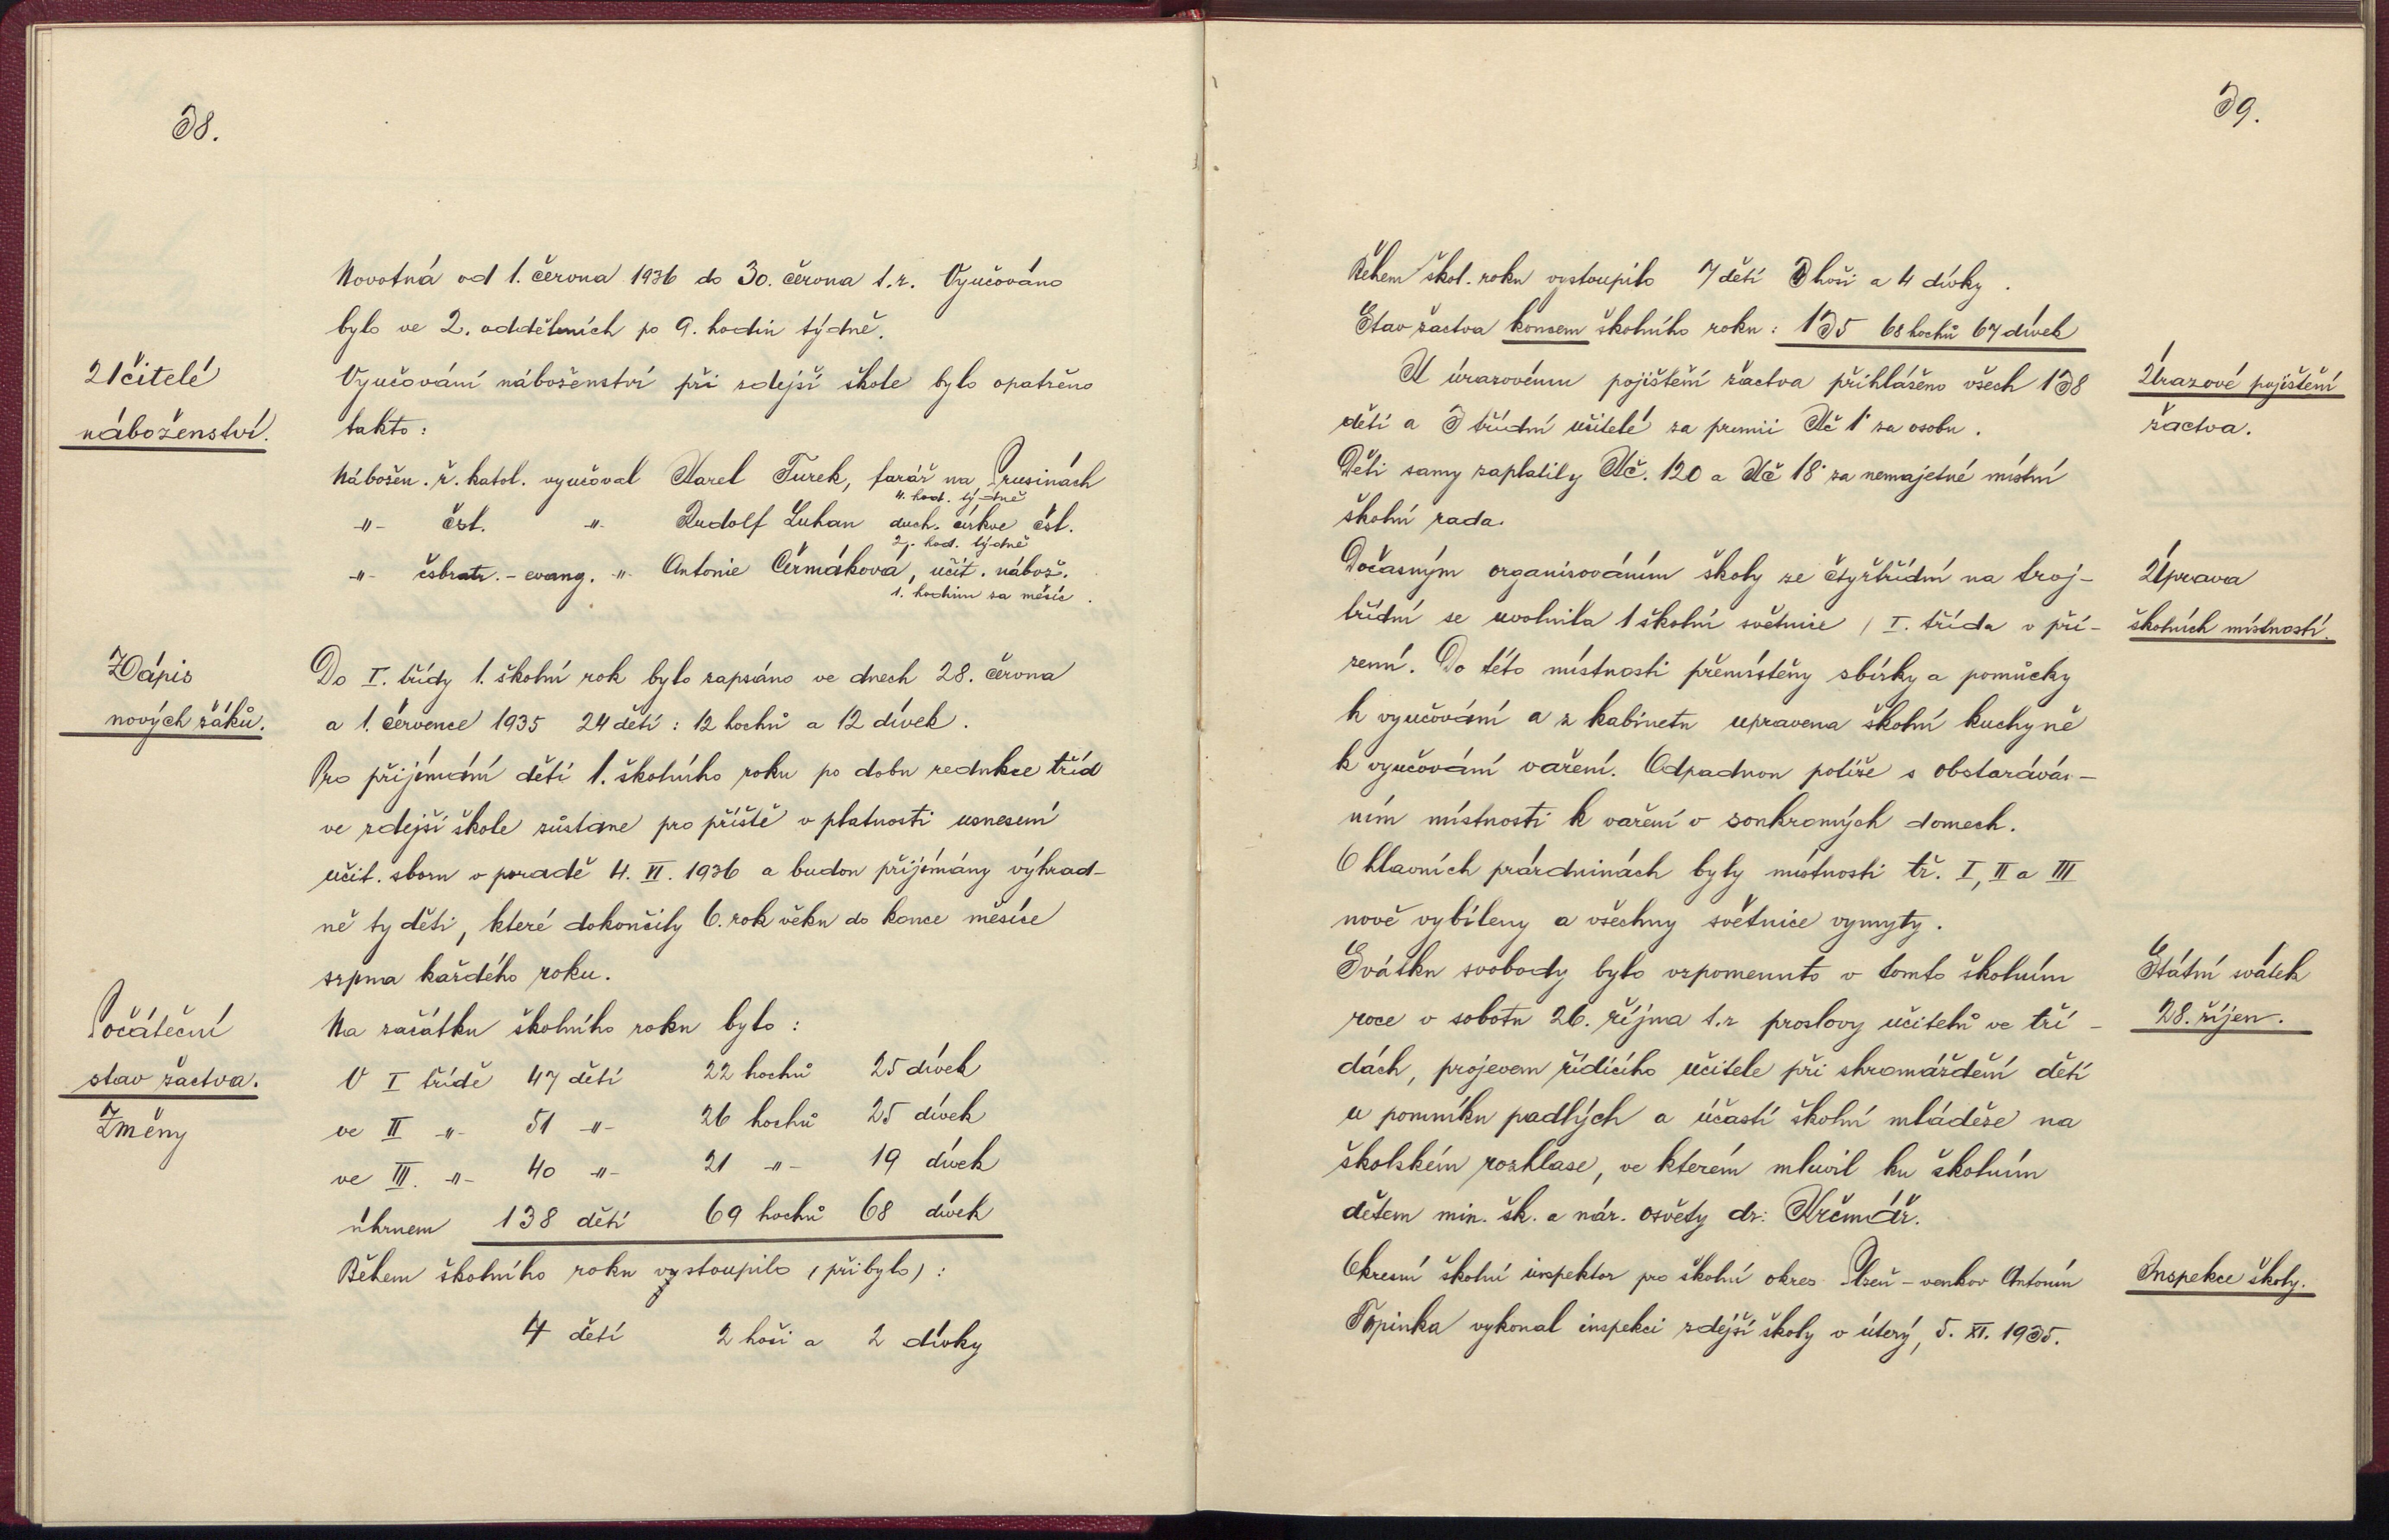 38.
Novotná od 1. června 1936 do 30. června t.r. Vyučováno
bylo ve 2. odděleních po 9. hodin týdně.
Učitelé
náboženství.
Vyučování náboženství při zdejší škole bylo opatřeno
takto:
Nábožen. ř. katol. vyučoval Karel Turek, farář na Prusinách
4. hod. týdně
-"- čsl. -"- Rudolf Luhan duch. církve čsl.
2j. hod. týdně
-"- čsbratr. - evang. -"- Antonie Čermáková, učit. nábož.
1. hodinu za měsíc.
Zápis
nových žáků.
Do I. třídy 1. školní rok bylo zapsáno ve dnech 28. června
a 1. července 1935 24 dětí: 12 hochů a 12 dívek.
Pro přijímání dětí 1. školního roku po dobu redukce tříd
ve zdejší škole zůstane pro příště v platnosti usnesení
učit. sboru v poradě 4. VI. 1936 a budou přijímány výhrad-
ně ty děti, které dokončily 6. rok věku do konce měsíce
srpna každého roku.
Počáteční
stav žactva.
Změny
Na začátku školního roku bylo:
V I třídě 47 dětí 22 hochů 25 dívek
ve II -"- 51 -"- 26 hochů 25 dívek
ve III. -"- 40 -"- 21 -"- 19 dívek
úhrnem 138 dětí 69 hochů 68 dívek
Během školního roku vystoupilo (přibylo):
4 dětí 2 hoši a 2 dívky
39.
Během škol. roku vystoupilo 7 dětí 3 hoši a 4 dívky.
Stav žactva koncem školního roku: 135 68 hochů 67 dívek
K úrazovému pojištění žactva přihlášeno všech 138
dětí a 3 třídní učitelé za premii Kč 1 za osobu.
Děti samy zaplatily Kč. 120 a Kč 18 za nemajetné místní
školní rada.
Úrazové pojištění
žactva.
Dočasným organisováním školy ze čtyřtřídní na troj-
třídní se uvolnila 1 školní světnice / I. třída v pří-
zemí. Do této místnosti přemístěny sbírky a pomůcky
k vyučování a z kabinetu upravena školní kuchyně
k vyučování vaření. Odpadnou potíže s obstaráván-
ním místnosti k vaření v soukromých domech.
O hlavních prázdninách byly místnosti tř. I, II a III
nově vybíleny a všechny světnice vymyty.
Úprava
školních místností.
Svátku svobody bylo vzpomenuto v tomto školním
roce v sobotu 26. října t.r proslovy učitelů ve tří-
dách, projevem řídícího učitele při shromáždění dětí
u pomníku padlých a účastí školní mládeže na
školském rozhlase, ve kterém mluvil ku školním
dětem min. šk. a nár. osvěty dr: Krčmář.
Státní svátek
28. říjen.
Okresní školní inspektor pro školní okres Plzeň - venkov Antonín
Topinka vykonal inspekci zdejší školy v úterý, 5. XI. 1935.
Inspekce školy.